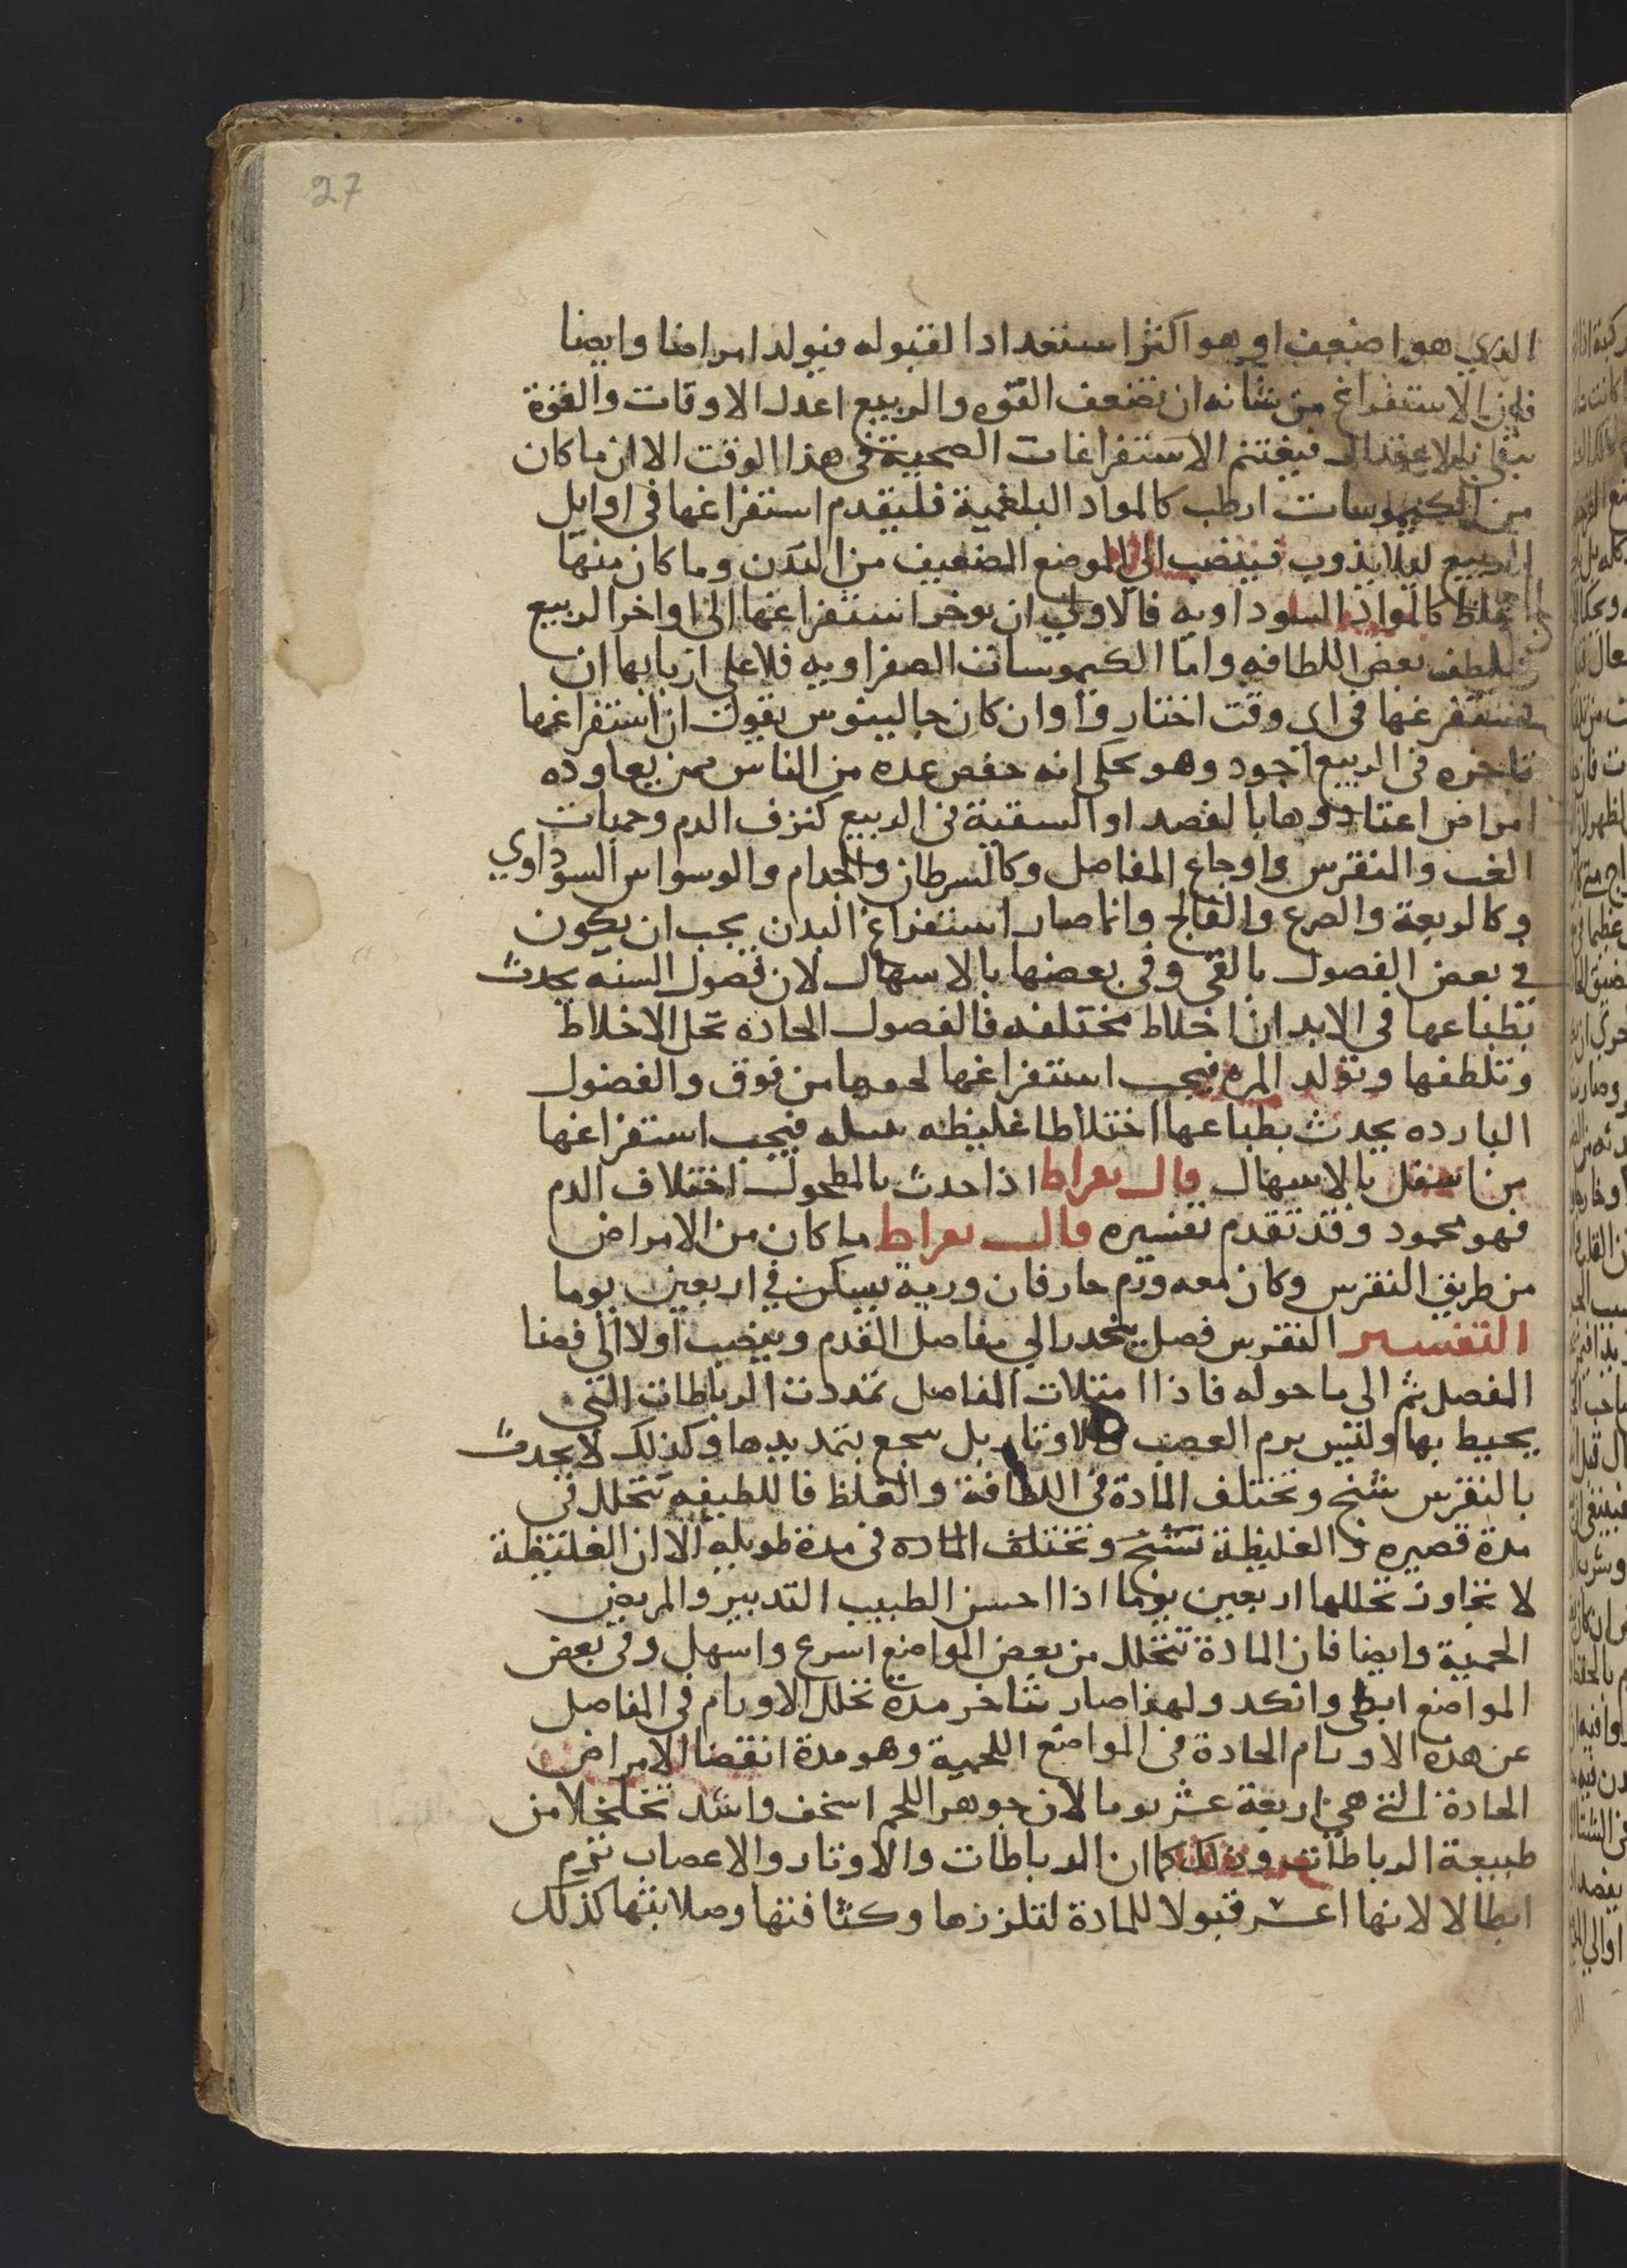 27
الذي هو اضعف او هو اكثر استعدادا لقبوله فيولد امراضا وايضا
فان الاستفراغ من شانه ان يضعف القوه والربيع اعدل الاوقات والقوة
تبقى بالاعتدال فيغتنم الاستفراغات الصحيبة في هذا الوقت الا ان ما كان
من الكيموسات ارطب كالمواد البلغمية فليقدم استفراغها في اوايل
الربيع ليلا يذوب فينصب الي الموضع الضعيف من البدن وما كان منها
اغلظ كالمواد السوداويه فالاولى ان يوخر استفراغها الى اواخر الربيع
ليلطف بعض اللطافه واما الكيموسات الصفراويه فلا على اربابها ان
يستفرغها في اي وقت اختاروا وان كان جالينوس يقول ان استفراغها
باخره في الربيع اجود وهو يحكى انه حفص عده من الناس ممن يعاوده
امراض اعتادوها بالفصد او السقية في الربيع كنزف الدم وحميات
الغب والنقرس واوجاع المفاصل وكالسرطان والجدام والوسواس السوداوي
وكالربعة والصرع والفالج وانما صار استفراغ البدن يجب ان يكون
في بعض الفصول بالقي وفي بعضها بالاسهال لان فصول السنه يحدث
بطباعها في الابدان اخلاط مختلفه فالفصول الحاده تحل الاخلاط
وتلطفها وتولد المره فيجب استفراغها من فوق والفضول
البارده يحدث بطباعها اختلاطا غليظه فيجب استفراغها
من اسفل بالاسهال قال بقراط اذا حدث بالمطحول اختلاف الدم
فهو محمود وقد تقدم تفسيره قال بقراط ما كان من الامراض
من طريق النقرس وكان معه ورم حار فان وربه يسكن في اربعين يوما
التفسير النقرس فصل ينحدر الي مفاصل القدم وينصب اولا الي فضا
المفصل ثم الى ما حوله فاذا امتلات المفاصل تمددت الرباطات التي
يحيط بها وليس يرم العصب والاوتار بل يتمديدها وكذلك لا يحدث
بالنقرس تشنج وتختلف المادة في اللطافة والغلظ فاللطيفه تتحلل في
مدة قصيره والغليظة تشنج وتختلف الماده في مدة طويله الا ان الغليظة
لا تجاوز تحللها اربعين يوما اذا احسن الطبيب التدبير والمريض
الحمية وايضا فان المادة تتحلل من بعض المواضع اسرع واسهل وفي بعض
المواضع ابطى وانكد ولهذا صار تتاخر مدة تحلل الاورام في المفاصل
عن هذه الاورام الحادة في المواضع اللحمية وهو مدة انقضا الامراض
الحادة التي هي اربعة عشر يوما لان جوهر اللحم اسخف واشد تخلخلا من
طبيعة الرباطات وذلك كما ان الرباطات والاوتار والاعصاب ترم
ابطا لا لانها اعسر قبولا للمادة لتلززها وكثافتها وصلابتها كذلك